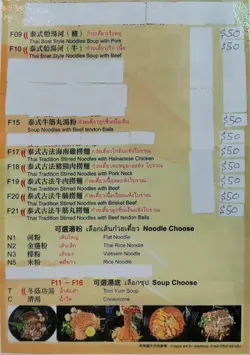 F09 泰式船湯河 ( 豬 ) ก๋วยเตี๋ยวเรือหมู $50
Thai Boat Style Noodles Soup with Pork
F10 泰式船湯河 ( 牛 ) ก๋วยเตี๋ยวเรือ เนื้อ $50
Thai Boat Style Noodles Soup with Beef
F15 泰式牛筋丸湯粉 $50
Soup Noodles with Beef tendon Balls
F17 泰式古法海南雞撈麵 $50
Thai Tradition Stirred Noodles with Hainanese Chicken
F18 泰式古法豬頸肉撈麵 $50
Thai Tradition Stirred Noodles with Pork Neck
F19 泰式古法牛肉撈麵 $50
Thai Tradition Stirred Noodles with Beef
F20 泰式古法牛腩撈麵 $50
Thai Tradition Stirred Noodles with Brisket Beef
F21 泰式古法牛筋丸撈麵 $50
Thai Tradition Stirred Noodles with Beef tendon Balls
可選瀨粉 เลือกเส้นก๋วยเตี๋ยว Noodle Choose
N1 河粉 เส้นใหญ่ Flat Noodle
N2 金邊粉 เส้นเล็ก Thai Rice Noodle
N3 檬粉 Vietnam Noodle
N5 米粉 หมี่ขาว Rice Noodle
F11 - F16 可選湯底 เลือกซุป Soup Choose
T 冬蔭功湯 น้ำต้มยำ Tom Yum Soup
C 清湯 น้ำใส Consomme